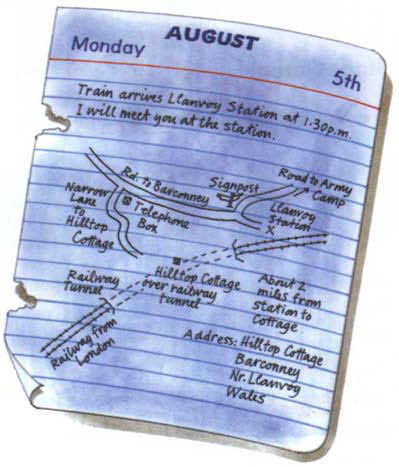 AUGUST
Monday
5th
Train arrives Llanvoy Station at 1.30p.m.
I will meet you at the station.
Rd. to Barconney
Signpost
Road to Army
Camp
Narrow
Lane
To
Hilltop
Cottage
Telephone
Box
Llanvoy
Station
X
Railway
Tunnel
Hilltop Cottage
over railway
tunnel
About 2
miles from
station to
Cottage
Railway from
London
Address: Hilltop Cottage
Barconney
Nr. Llanvoy
Wales